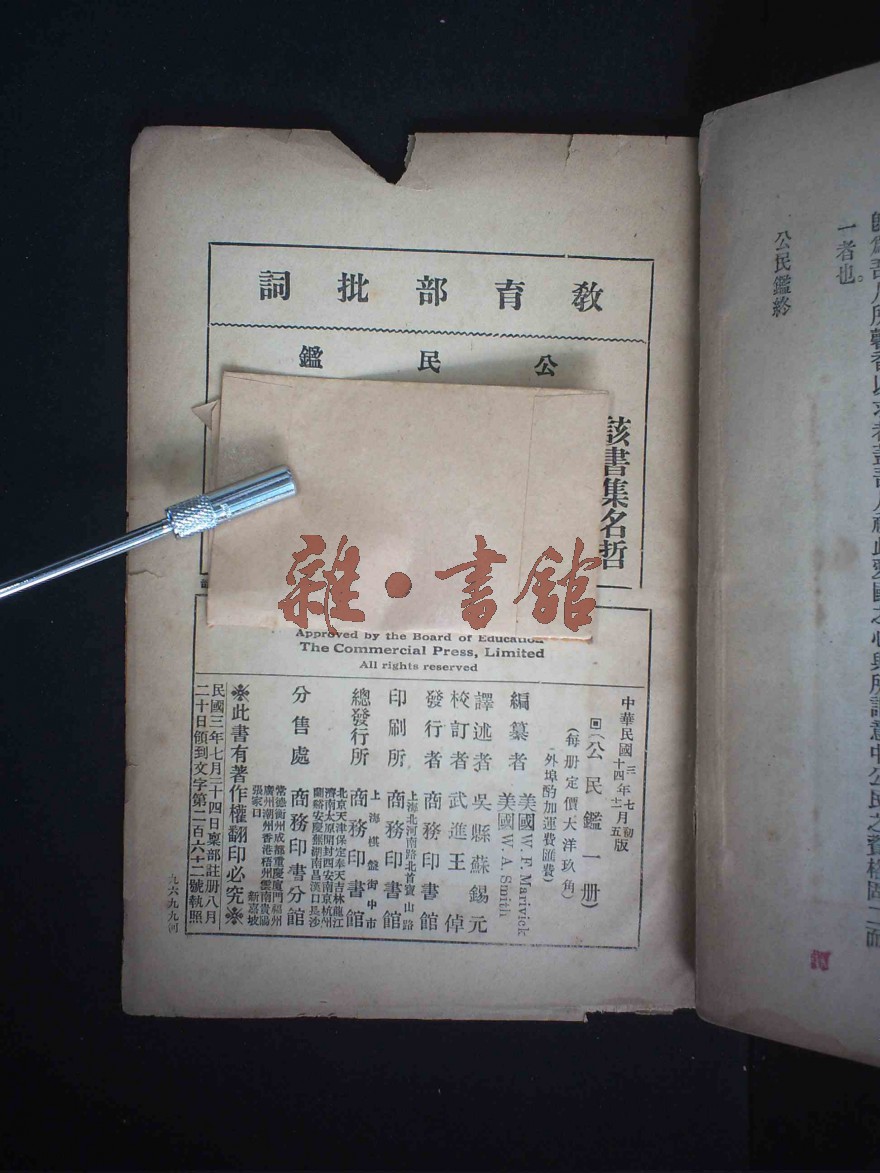 教育部批詞
公民鑑
該書集名哲
雜·書館
Approved by the Board of Education
The Commercial Press, Limited
All rights reserved
中華民國三年七月初版
十四年十二月五版
(公民鑑一册)
(每册定價大洋玖角)
外埠酌加運費匯費
編纂者 美國W. F. Marivick
美國W. A. Smith
譯述者 吳縣蘇錫元
校訂者 武進王倬
發行者 商務印書館
上海北河南路北首寶山路
印刷所 商務印書館
上海棋盤街中市
總發行所 商務印書館
北京天津保定奉天吉林龍江
濟南太原開封西安南京杭州
蘭谿安慶蕪湖南昌漢口長沙
分售處 商務印書分館
常德衡州成都重慶廈門福州
廣州潮州香港梧州雲南貴陽
張家口 新嘉坡
※此書有著作權翻印必究※
民國三年七月二十四日稟部註册八月
二十日領到文字第二百六十二號執照
九六九九河
一者也。
公民鑑終